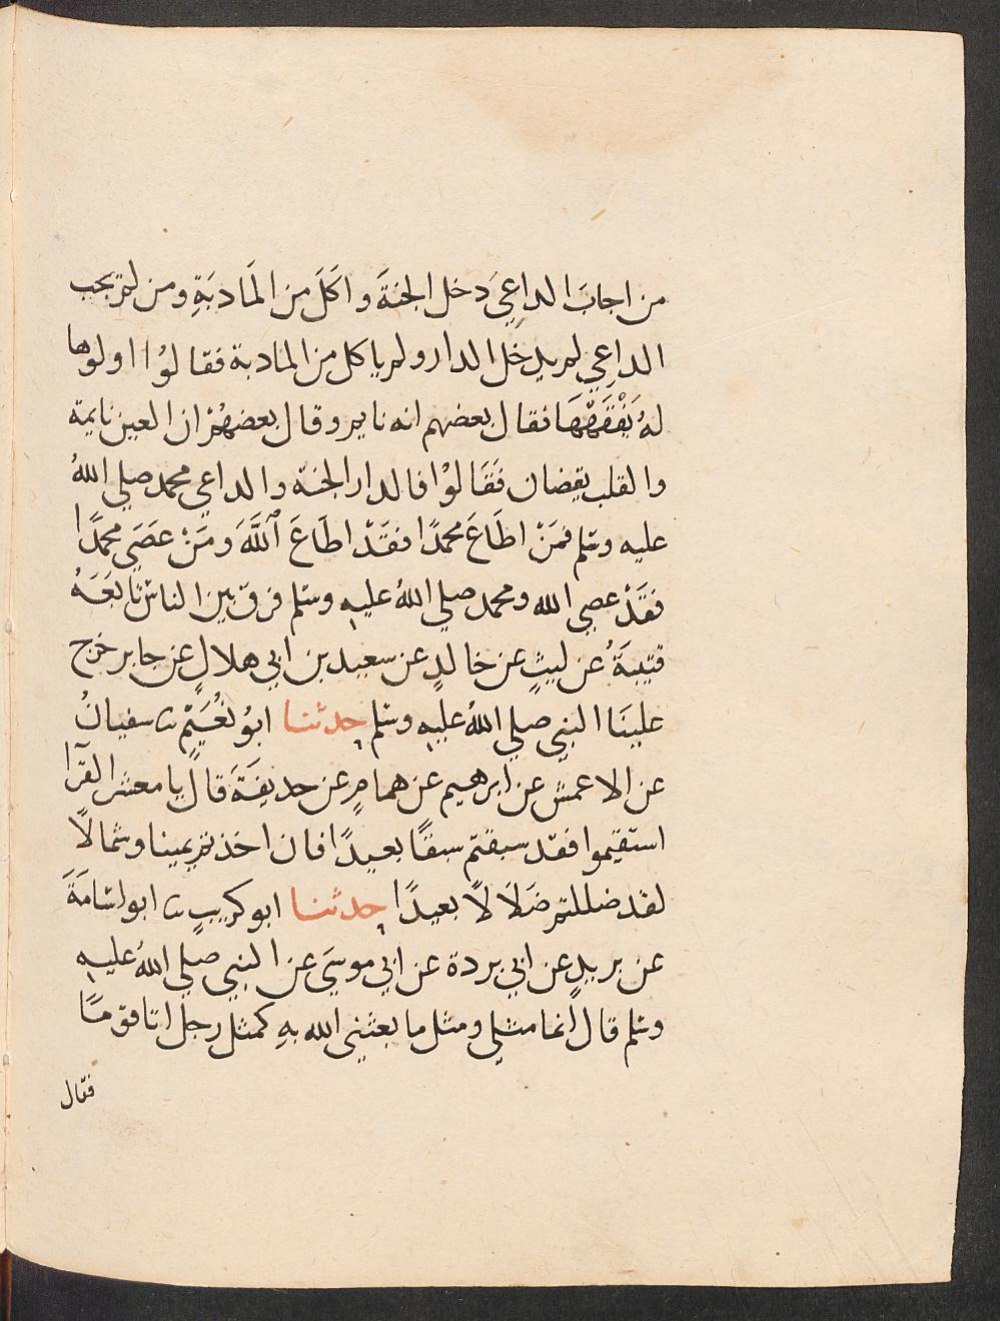 من اجابَ الداعِيَ دَخل الجنةَ واَكَلَ من المَادبَةِ ومن لم يجب
الداعِي لم يدخل الدار ولم ياكل من المادبة فقالوُا اولوُها
لهُ يَفْقَهْهَا فقال بعضهم انه نايم وقال بعضهُمْ ان العين نايمة
والقلب يقضان فَقَالوْا فالدار الجنة والداعي محمد صلي اللهُ
عليه وسلم فمَنْ اطَاعَ محمدًا فقَدْ اطَاعَ ٱللَّهَ ومَنْ عصَي محمدًا
فقَدْ عصي الله ومحمد صلي اللهُ عليهِ وسلم فرق بين الناس تابَعَهُ
قتيبَةُ عن ليثٍ عن خالدٍ عن سعيد بن ابي هلالٍ عن جابر خرج
علينَا النبي صلي اللهُ عليهِ وسلم حدثنا ابوُ نُعَيْمٍ ثنا سفيانُ
عن الاعمش عن ابرهيم عن همامٍ عن حذيفَةَ قال يا معشر القرآا
استقيموا فقد سبقتم سبقًا بعيدًا فان اخذتم يمينا وشمالًا
لقد ضللتم ضَلَالًا بعيدًا حدثنا ابو كريبٍ ثنا ابو اسَامَةَ
عن بريدٍ عن ابي بردة عن ابي موسَي عن النبي صلي اللهُ عليهِ
وسلم قال انما مثلي ومثل ما بعثني الله بهِ كمثل رجل اتا قومًا
فقال